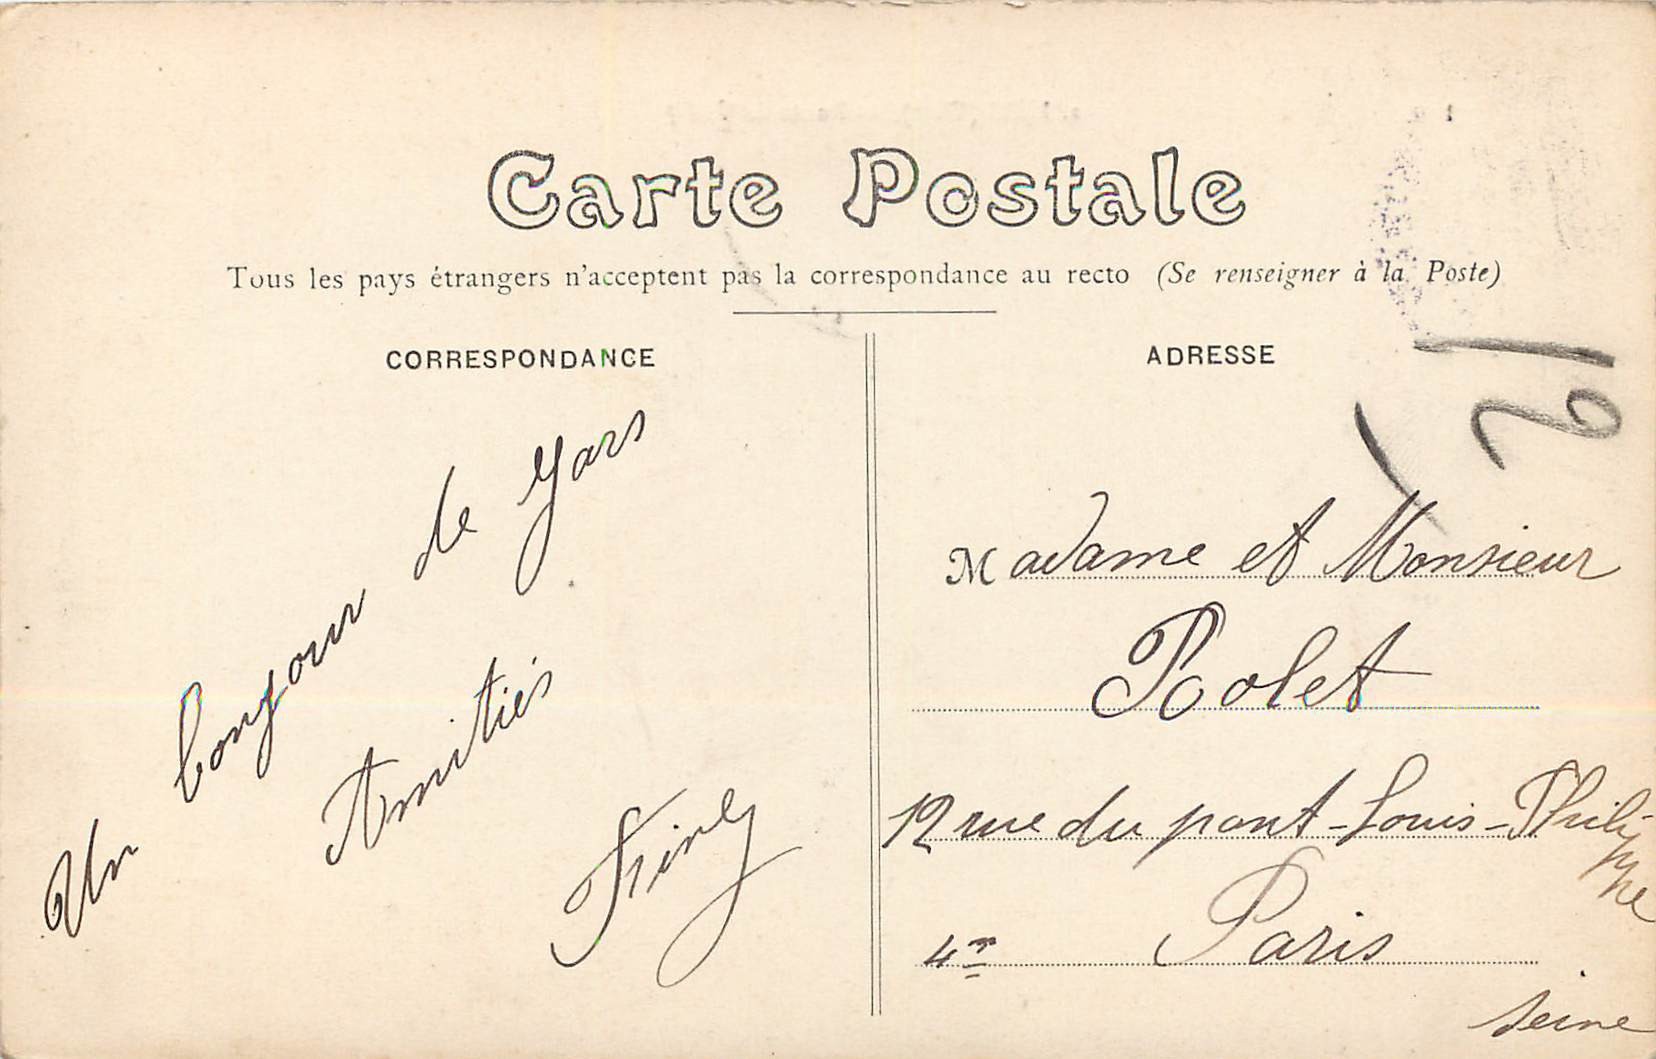 Carte Postale
Tous les pays étrangers n'acceptent pas la correspondance au recto (Se renseigner à la Poste)
CORRESPONDANCE
ADRESSE
12
Un bonjour de Yars
Amitiés
Madame et Monsieur
Polet
12 rue du pont-Louis-Philippe
4e Paris
Seine